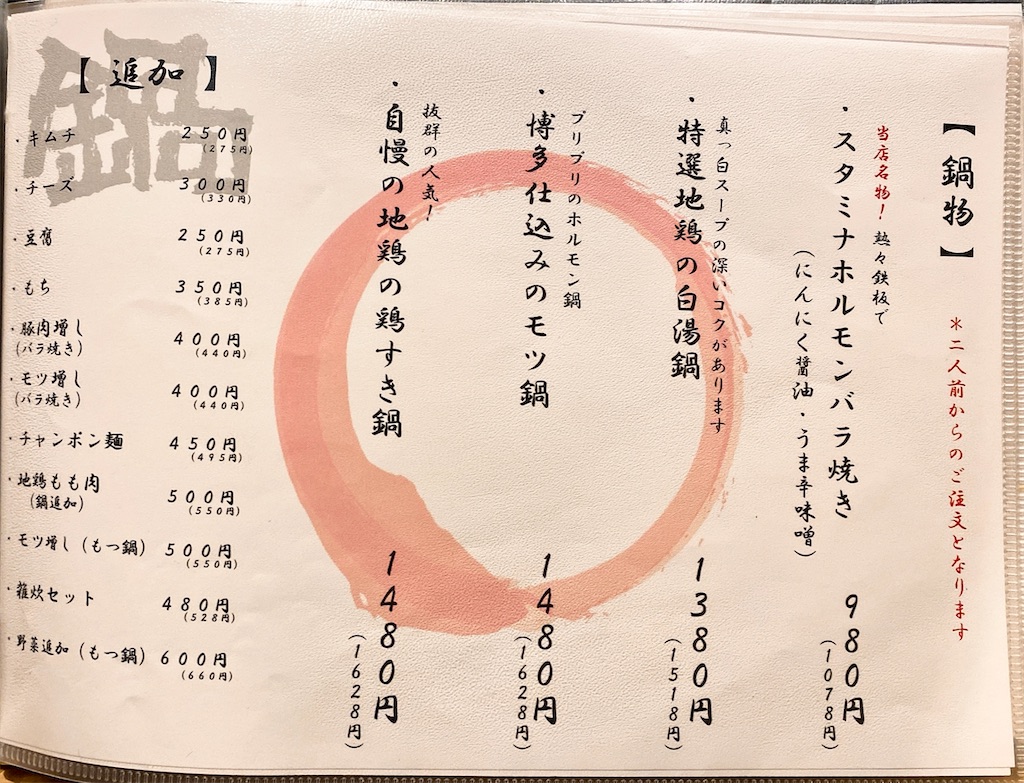 【鍋物】
＊二人前からのご注文となります
当店名物！熱々鉄板で
・スタミナホルモンバラ焼き
（にんにく醤油・うま辛味噌）
980円
（1078円）
真っ白スープの深いコクがあります
・特選地鶏の白湯鍋
1380円
（1518円）
プリプリのホルモン鍋
・博多仕込みのモツ鍋
1480円
（1628円）
抜群の人気！
・自慢の地鶏の鶏すき鍋
1480円
（1628円）
鍋
【追加】
・キムチ 250円
（275円）
・チーズ 300円
（330円）
・豆腐 250円
（275円）
・もち 350円
（385円）
・豚肉増し
（バラ焼き） 400円
（440円）
・モツ増し
（バラ焼き） 400円
（440円）
・チャンポン麺 450円
（495円）
・地鶏もも肉
（鍋追加） 500円
（550円）
・モツ増し（もつ鍋） 500円
（550円）
・雑炊セット 480円
（528円）
・野菜追加（もつ鍋） 600円
（660円）